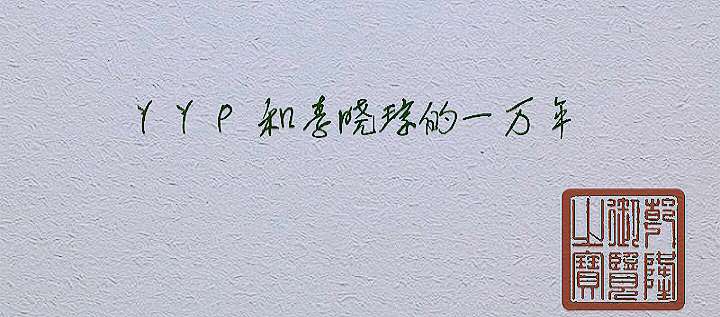 YYP和李晓琼的一万年
乾隆
御覽
之寶